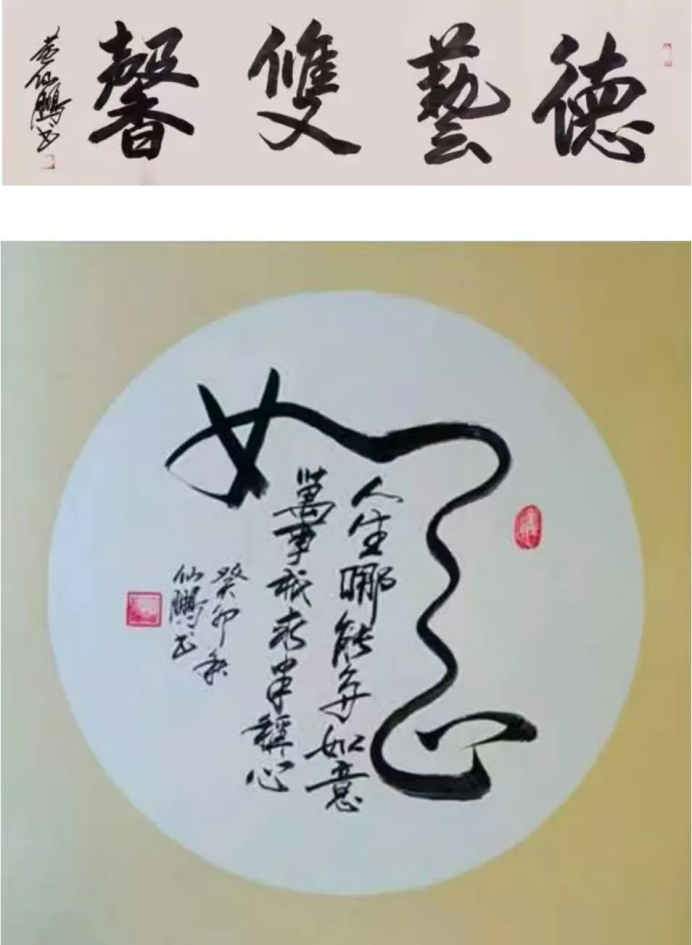 德藝雙馨
黄仙鵬书
如意
人生哪能多如意
萬事只求半稱心
癸卯秋
仙鵬书